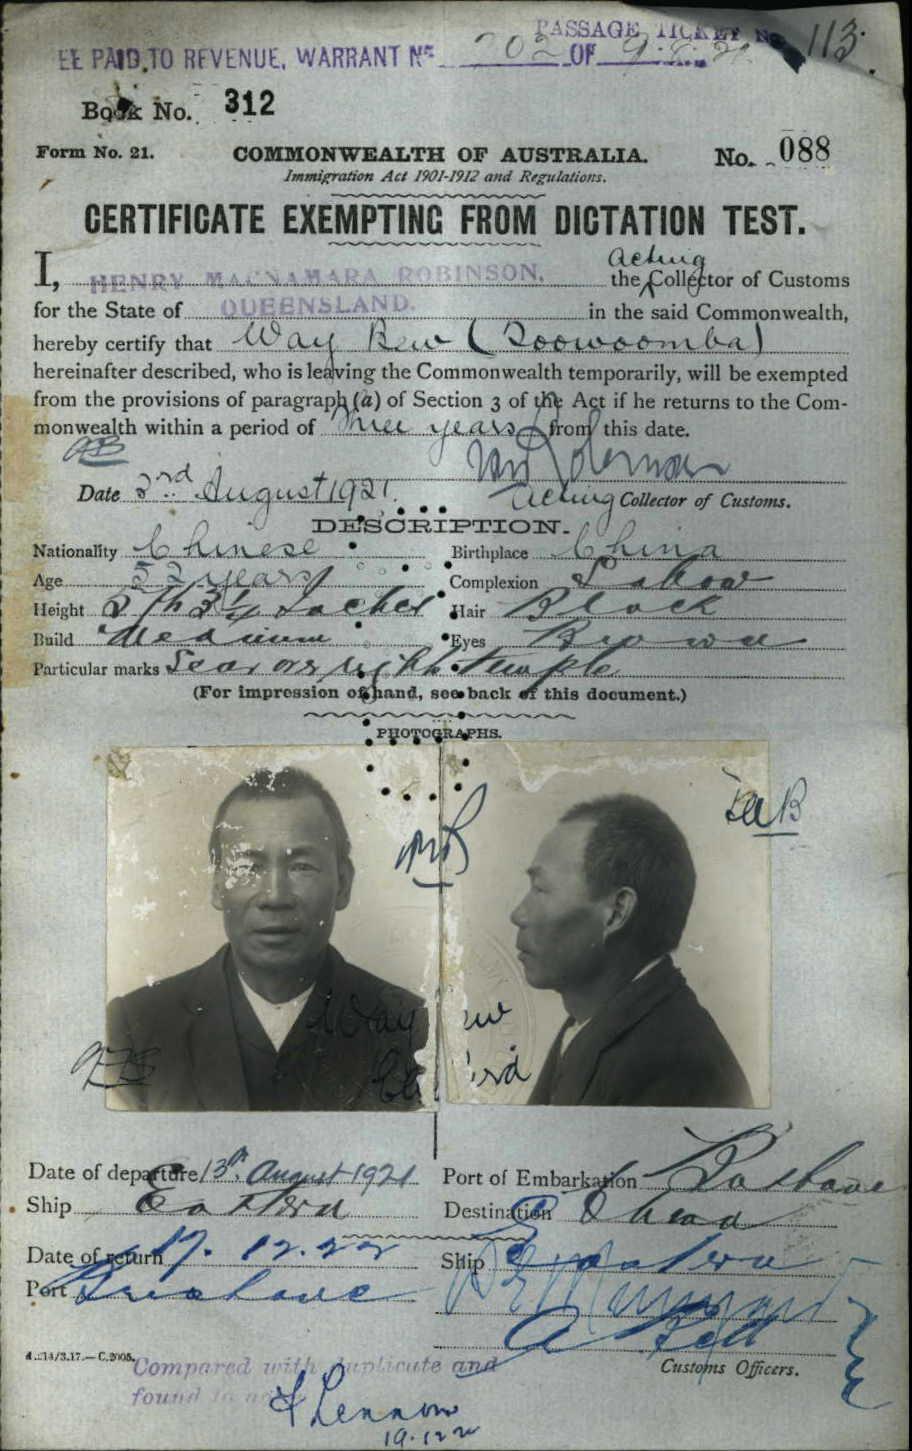 PASSAGE TICKET No 113.
FEE PAID TO REVENUE, WARRANT No 202 OF 9.8.21
Book No. 312
Form No. 21. COMMONWEALTH OF AUSTRALIA. No. 088
Immigration Act 1901-1912 and Regulations.
CERTIFICATE EXEMPTING FROM DICTATION TEST.
I, HENRY MACNAMARA ROBINSON, the Acting Collector of Customs
for the State of QUEENSLAND. in the said Commonwealth,
hereby certify that Way Bew (Toowoomba)
hereinafter described, who is leaving the Commonwealth temporarily, will be exempted
from the provisions of paragraph (a) of Section 3 of the Act if he returns to the Com-
monwealth within a period of Three years from this date.
Date 3rd August 1921.
Acting Collector of Customs.
DESCRIPTION.
Nationality Chinese Birthplace China
Age 52 years Complexion
Height 5 ft 3 1/4 Inches Hair Black
Build Medium Eyes Brown
Particular marks Scar on right temple
(For impression of hand, see back of this document.)
PHOTOGRAPHS.
Way ew
Date of departure 13th August 1921 Port of Embarkation Brisbane
Ship Eastern Destination China
Date of return 17.12.22 Ship Eastern
Port Brisbane
Customs Officers.
C.2005.
Compared with duplicate and
found to
19.12.22